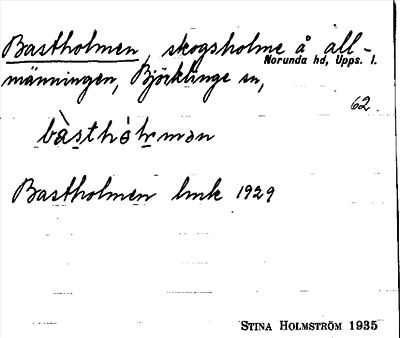 Bastholmen, skogsholme å all-
Norunda hd, Upps. l.
männingen, Björklinge sn,
62.
Bastholmen lmk 1929
STINA HOLMSTRÖM 1935